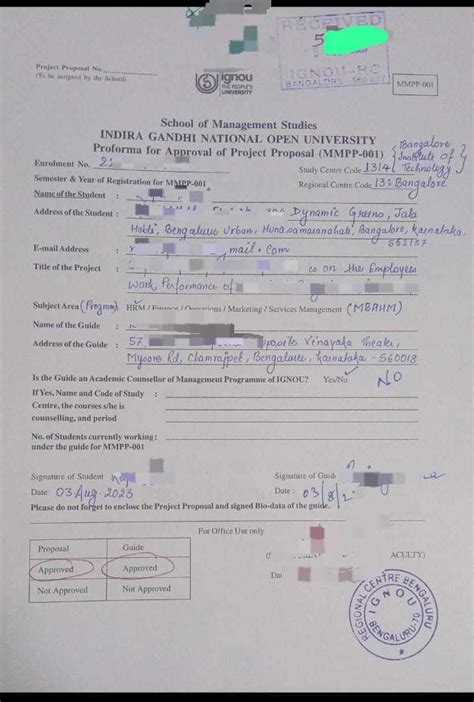 RECEIVED
5
IGNOU-RC
BANGALORE
Project Proposal No.
(To be assigned by the School)
ignou
THE PEOPLE'S
UNIVERSITY
MMPP-001
School of Management Studies
INDIRA GANDHI NATIONAL OPEN UNIVERSITY
Proforma for Approval of Project Proposal (MMPP-001)
Enrolment No. 2
Study Centre Code 1314 { Bangalore Institute of Technology }
Semester & Year of Registration for MMPP-001
Regional Centre Code 13: Bangalore
Name of the Student :
Address of the Student : Dynamic Greeno, Jala
Hobli, Bengaluru Urban, Hunasamaranahali, Bangalore, Karnataka.
562157
E-mail Address : mail.com
Title of the Project : on the Employees
Work Performance of
Subject Area (Program) : HRM / Finance / Operations / Marketing / Services Management (MBAHM)
Name of the Guide :
Address of the Guide : 57, opposite Vinayaka Theater,
Mysore Rd, Chamrajpet, Bengaluru, Karnataka - 560018
Is the Guide an Academic Counsellor of Management Programme of IGNOU? Yes/No NO
If Yes, Name and Code of Study :
Centre, the courses s/he is
counselling, and period
No. of Students currently working :
under the guide for MMPP-001
Signature of Student
Signature of Guide
Date: 03 Aug 2023
Date : 03/8/2
Please do not forget to enclose the Project Proposal and signed Bio-data of the guide.
For Office Use only
Proposal Guide
Approved Approved
Not Approved Not Approved
ACULTY)
Da
REGIONAL CENTRE BENGALURU
IGNOU
BENGALURU-70